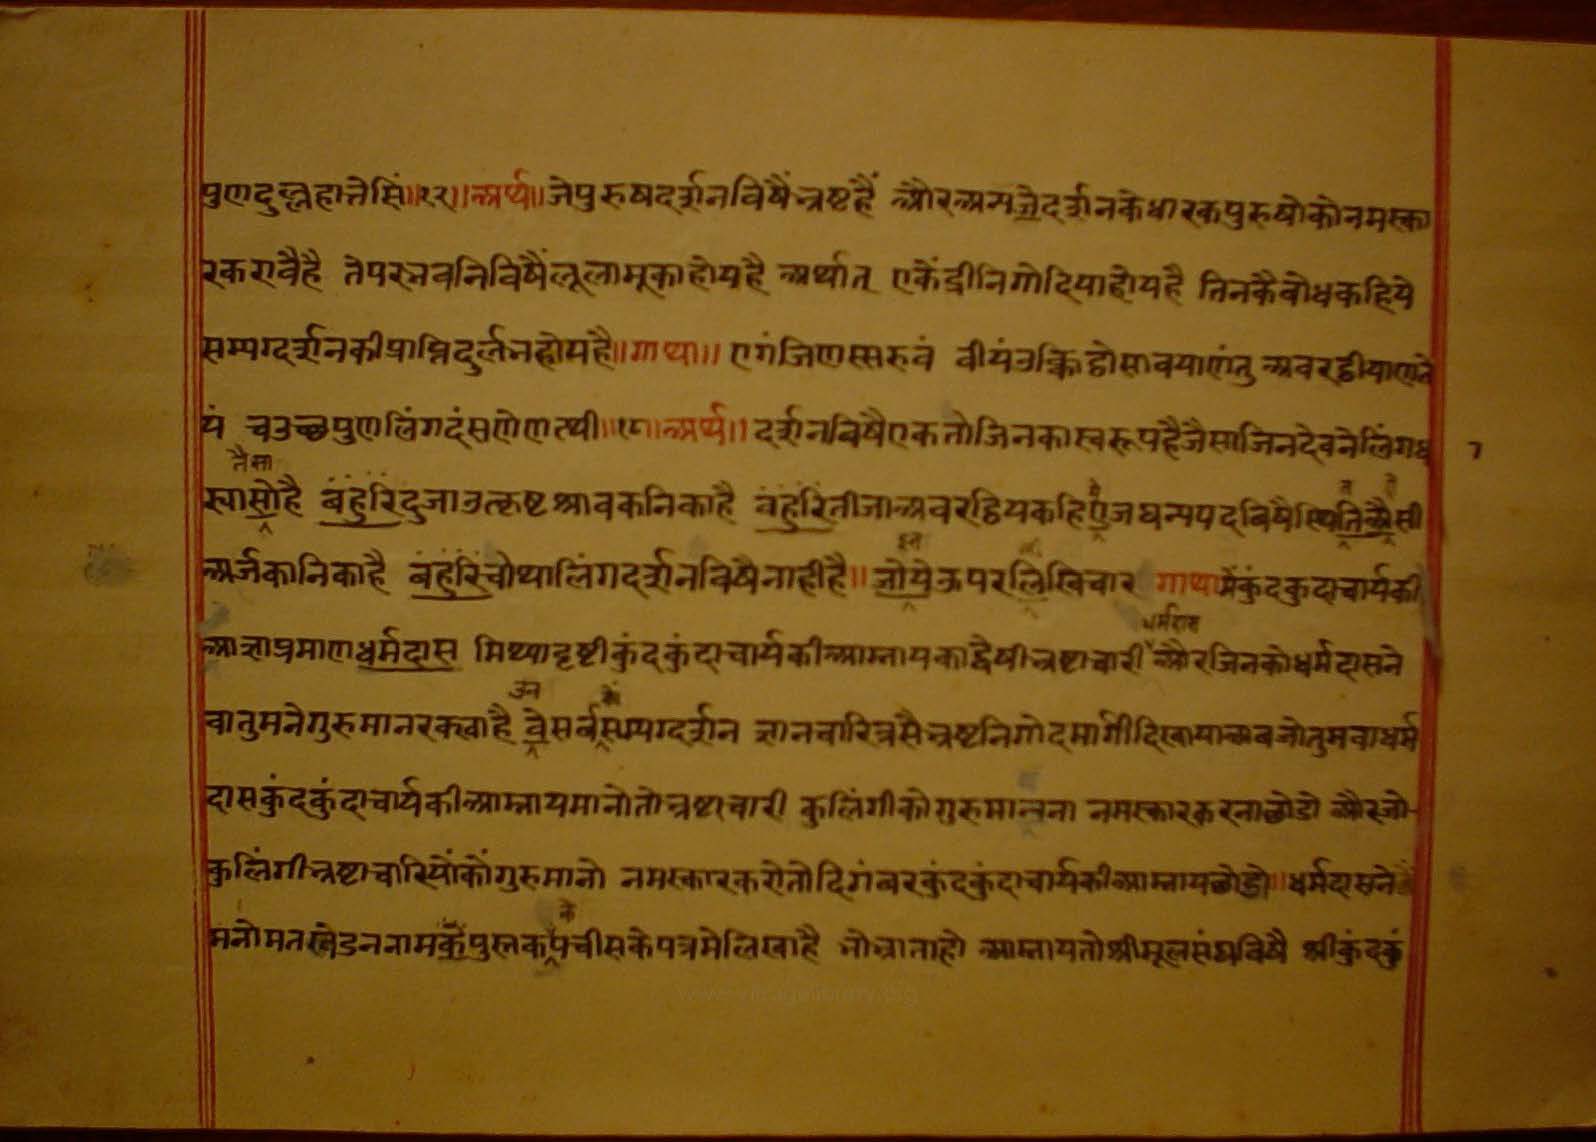 पुणदुल्लहातेसिं॥१२॥अर्थ॥जेपुरुषदर्शनविषैंभ्रष्टहैं औरअन्यजेदर्शनकेधारकपुरुषोकोनमस्का
रकरावैहै तेपरभवनिविषैंलूलामूकाहोयहै अर्थात् एकेंद्रीनिगोदियाहोयहै तिनकैबोधकहिये
सम्यग्दर्शनकीप्राप्तिदुर्लभहोयहै॥गाथा॥ एगंजिणस्सरुवं वीयंउक्किट्ठोसावयाणंतु अवरट्ठीयाणत
यं चउच्छपुणलिंगदंसणेणत्थी॥१८॥अर्थ॥दर्शनविषैएकतोजिनकास्वरूपहैजैसाजिनदेवनेलिंगध ७
तैसा
स्यासोहै बंहुंरिंदुजाउत्कृष्टश्रावकनिकाहै बंहुंरिंतीजाअवरट्ठियकहिएजघन्यपदविषैस्थितिऐसी
अर्जकानिकाहै बंहुंरिंचोथालिंगदर्शनविषैनाहीहै॥ जोयेऊपरलिखिचार गाथामैकुंदकुदाचार्यकी
धर्मदास
आज्ञाप्रमाणधर्मदास मिथ्यादृष्टीकुंदकुंदाचार्यकीआम्नायकाद्वेषीभ्रष्टाचारी औरजिनकोधर्मदासने
उन
वातुमनेगुरुमानरक्खाहै वेसर्वसम्यग्दर्शन ज्ञानचारित्रसैभ्रष्टनिगोदमार्गीदिखायाअबजोतुमवाधर्म
दासकुंदकुंदाचार्यकीआम्नायमानोतोभ्रष्टाचारी कुलिंगीकोगुरुमानना नमस्कारकरनाछोडो औरजो-
कुलिंगीभ्रष्टाचारियोंकोंगुरुमानो नमस्कारकरोतोदिगंबरकुंदकुंदाचार्यकीआम्नायछोडो॥धर्मदासने
के
मनोमतखंडननामकेंपुस्तकपचीसकेपत्रमेलिखाहै भोभ्राताहो आम्नायतोश्रीमूलसंघविषै श्रीकुंदकुं